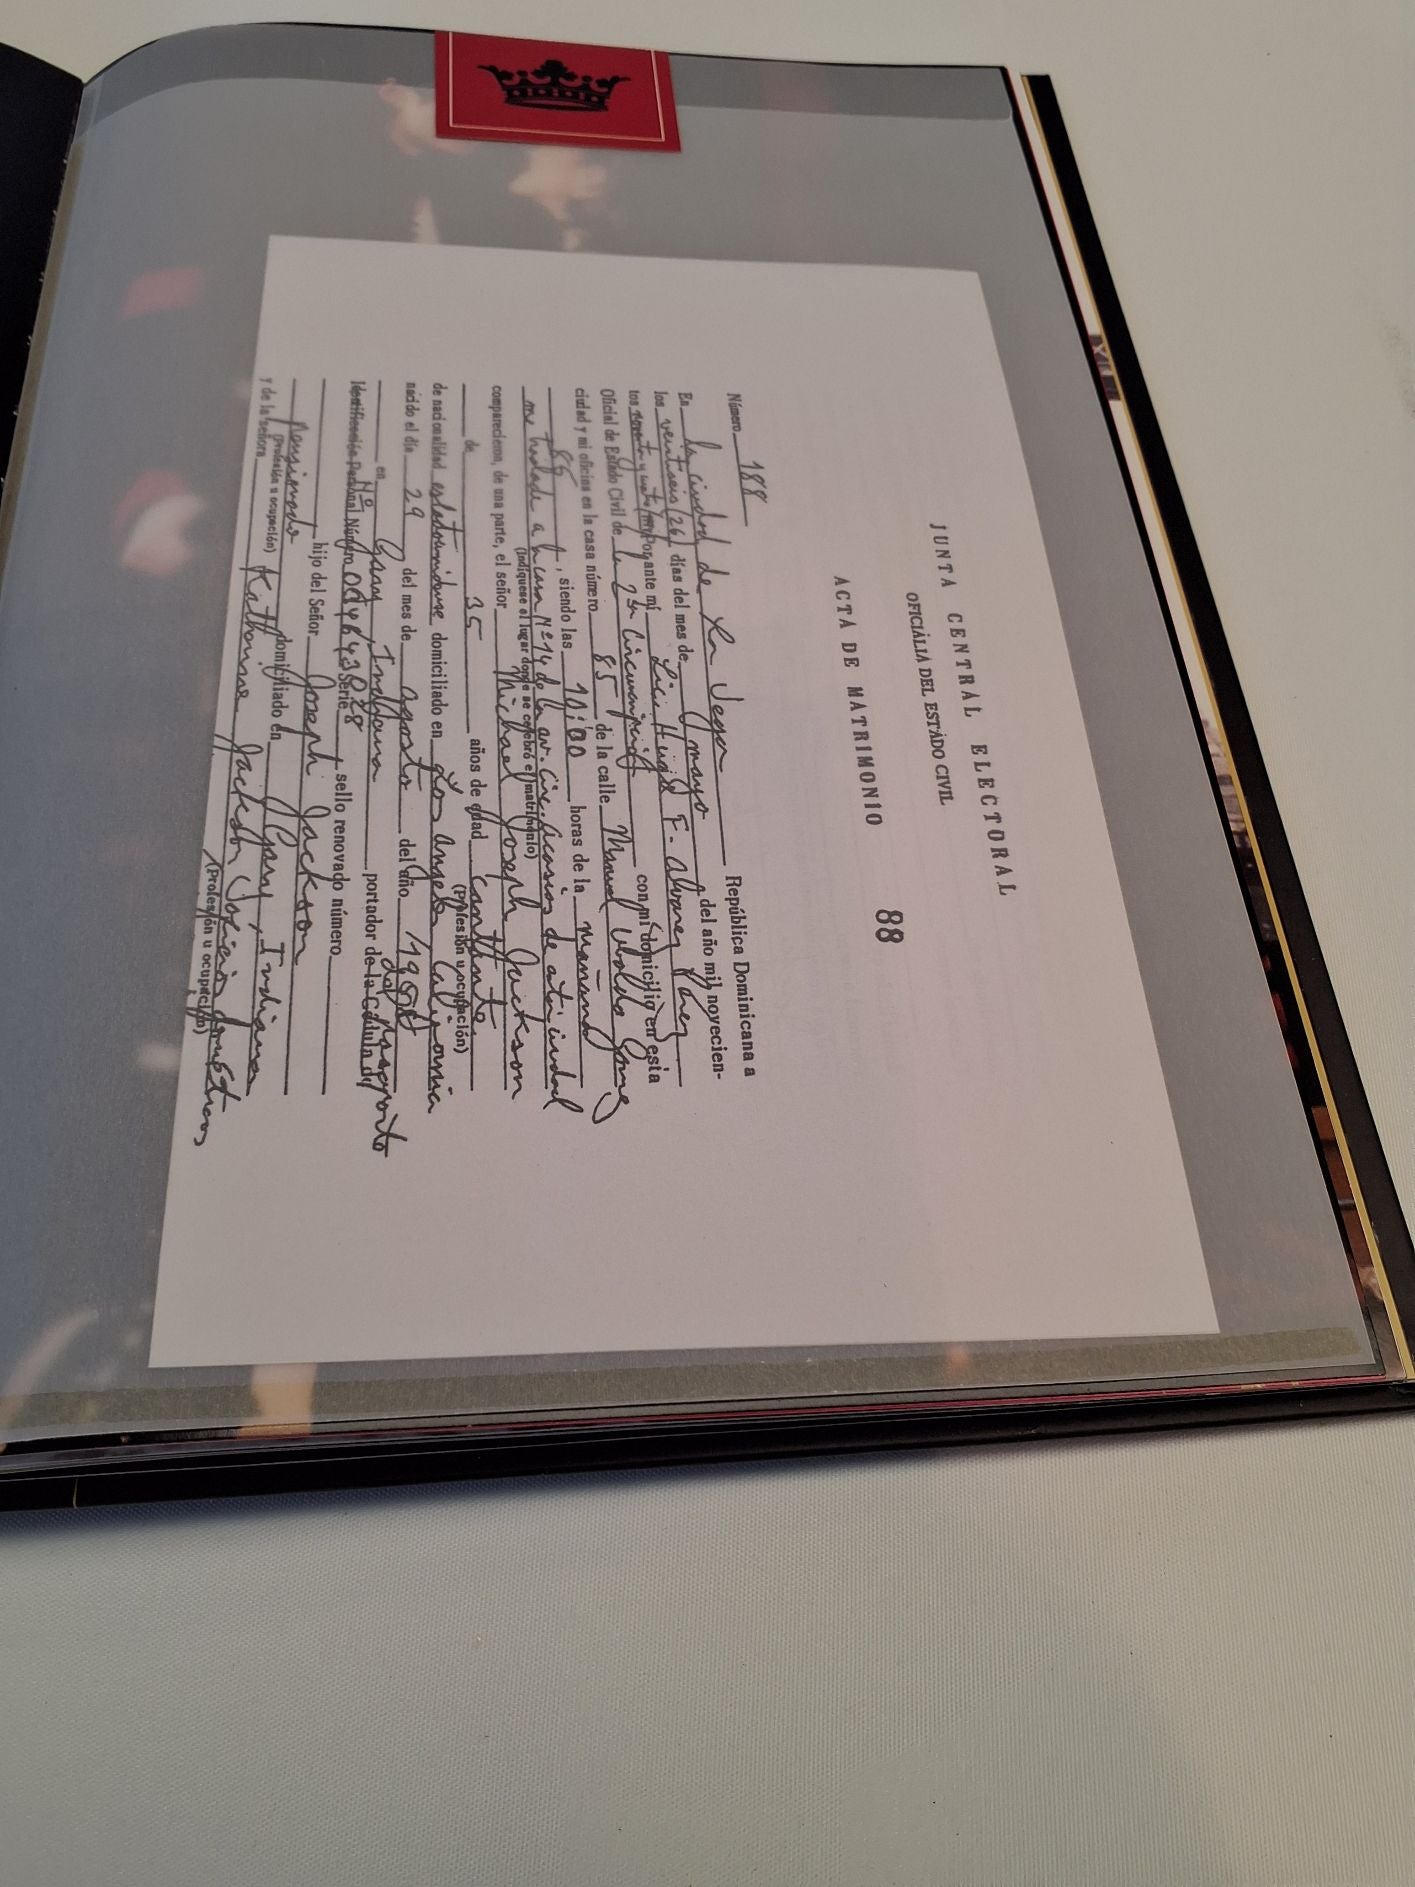 JUNTA CENTRAL ELECTORAL
OFICIALIA DEL ESTADO CIVIL
ACTA DE MATRIMONIO 88
Número 188
En la ciudad de La Vega República Dominicana a
los veintiseis (26) días del mes de mayo del año mil novecien-
tos noventa y cuatro Por ante mí Lic. Hugo F. Alvarez Pérez
Oficial de Estado Civil de la 2da Circunscripción con mi domicilio en esta
ciudad y mi oficina en la casa número 85 de la calle Manuel Ubaldo Gómez
86, siendo las 10:00 horas de la mañana
me traslade a la casa Nº 14 de la av. Cire. de esta ciudad
(Indíquese el lugar donde se celebró el matrimonio)
comparecieron, de una parte, el señor Michael Joseph Jackson
de 35 años de edad cantante
(Profesión u ocupación)
de nacionalidad estadounidense domiciliado en Los Angeles California
nacido el día 29 del mes de agosto del año 1958
en Gary, Indiana portador de la Cédula de del Pasaporte
Identificación Personal Número Nº Serie, sello renovado número
hijo del Señor Joseph Jackson
pensionado domiciliado en Gary, Indiana
(Profesión u ocupación)
y de la señora Katherine Jackson Oficios domésticos
(Profesión u ocupación)